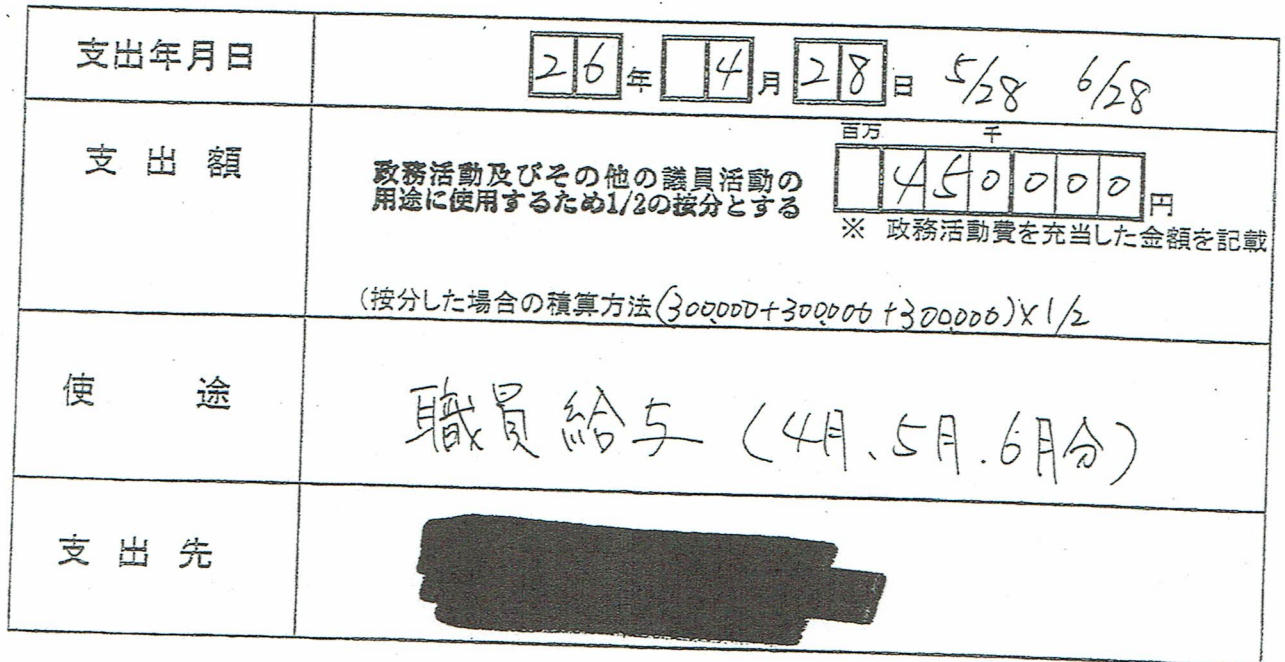 支出年月日 26年 4月28日 5/28 6/28
支出額
百万 千
政務活動及びその他の議員活動の
用途に使用するため1/2の按分とする
450000円
※ 政務活動費を充当した金額を記載
(按分した場合の積算方法(300,000+300,000+300,000)×1/2
使途 職員給与(4月、5月.6月分)
支出先